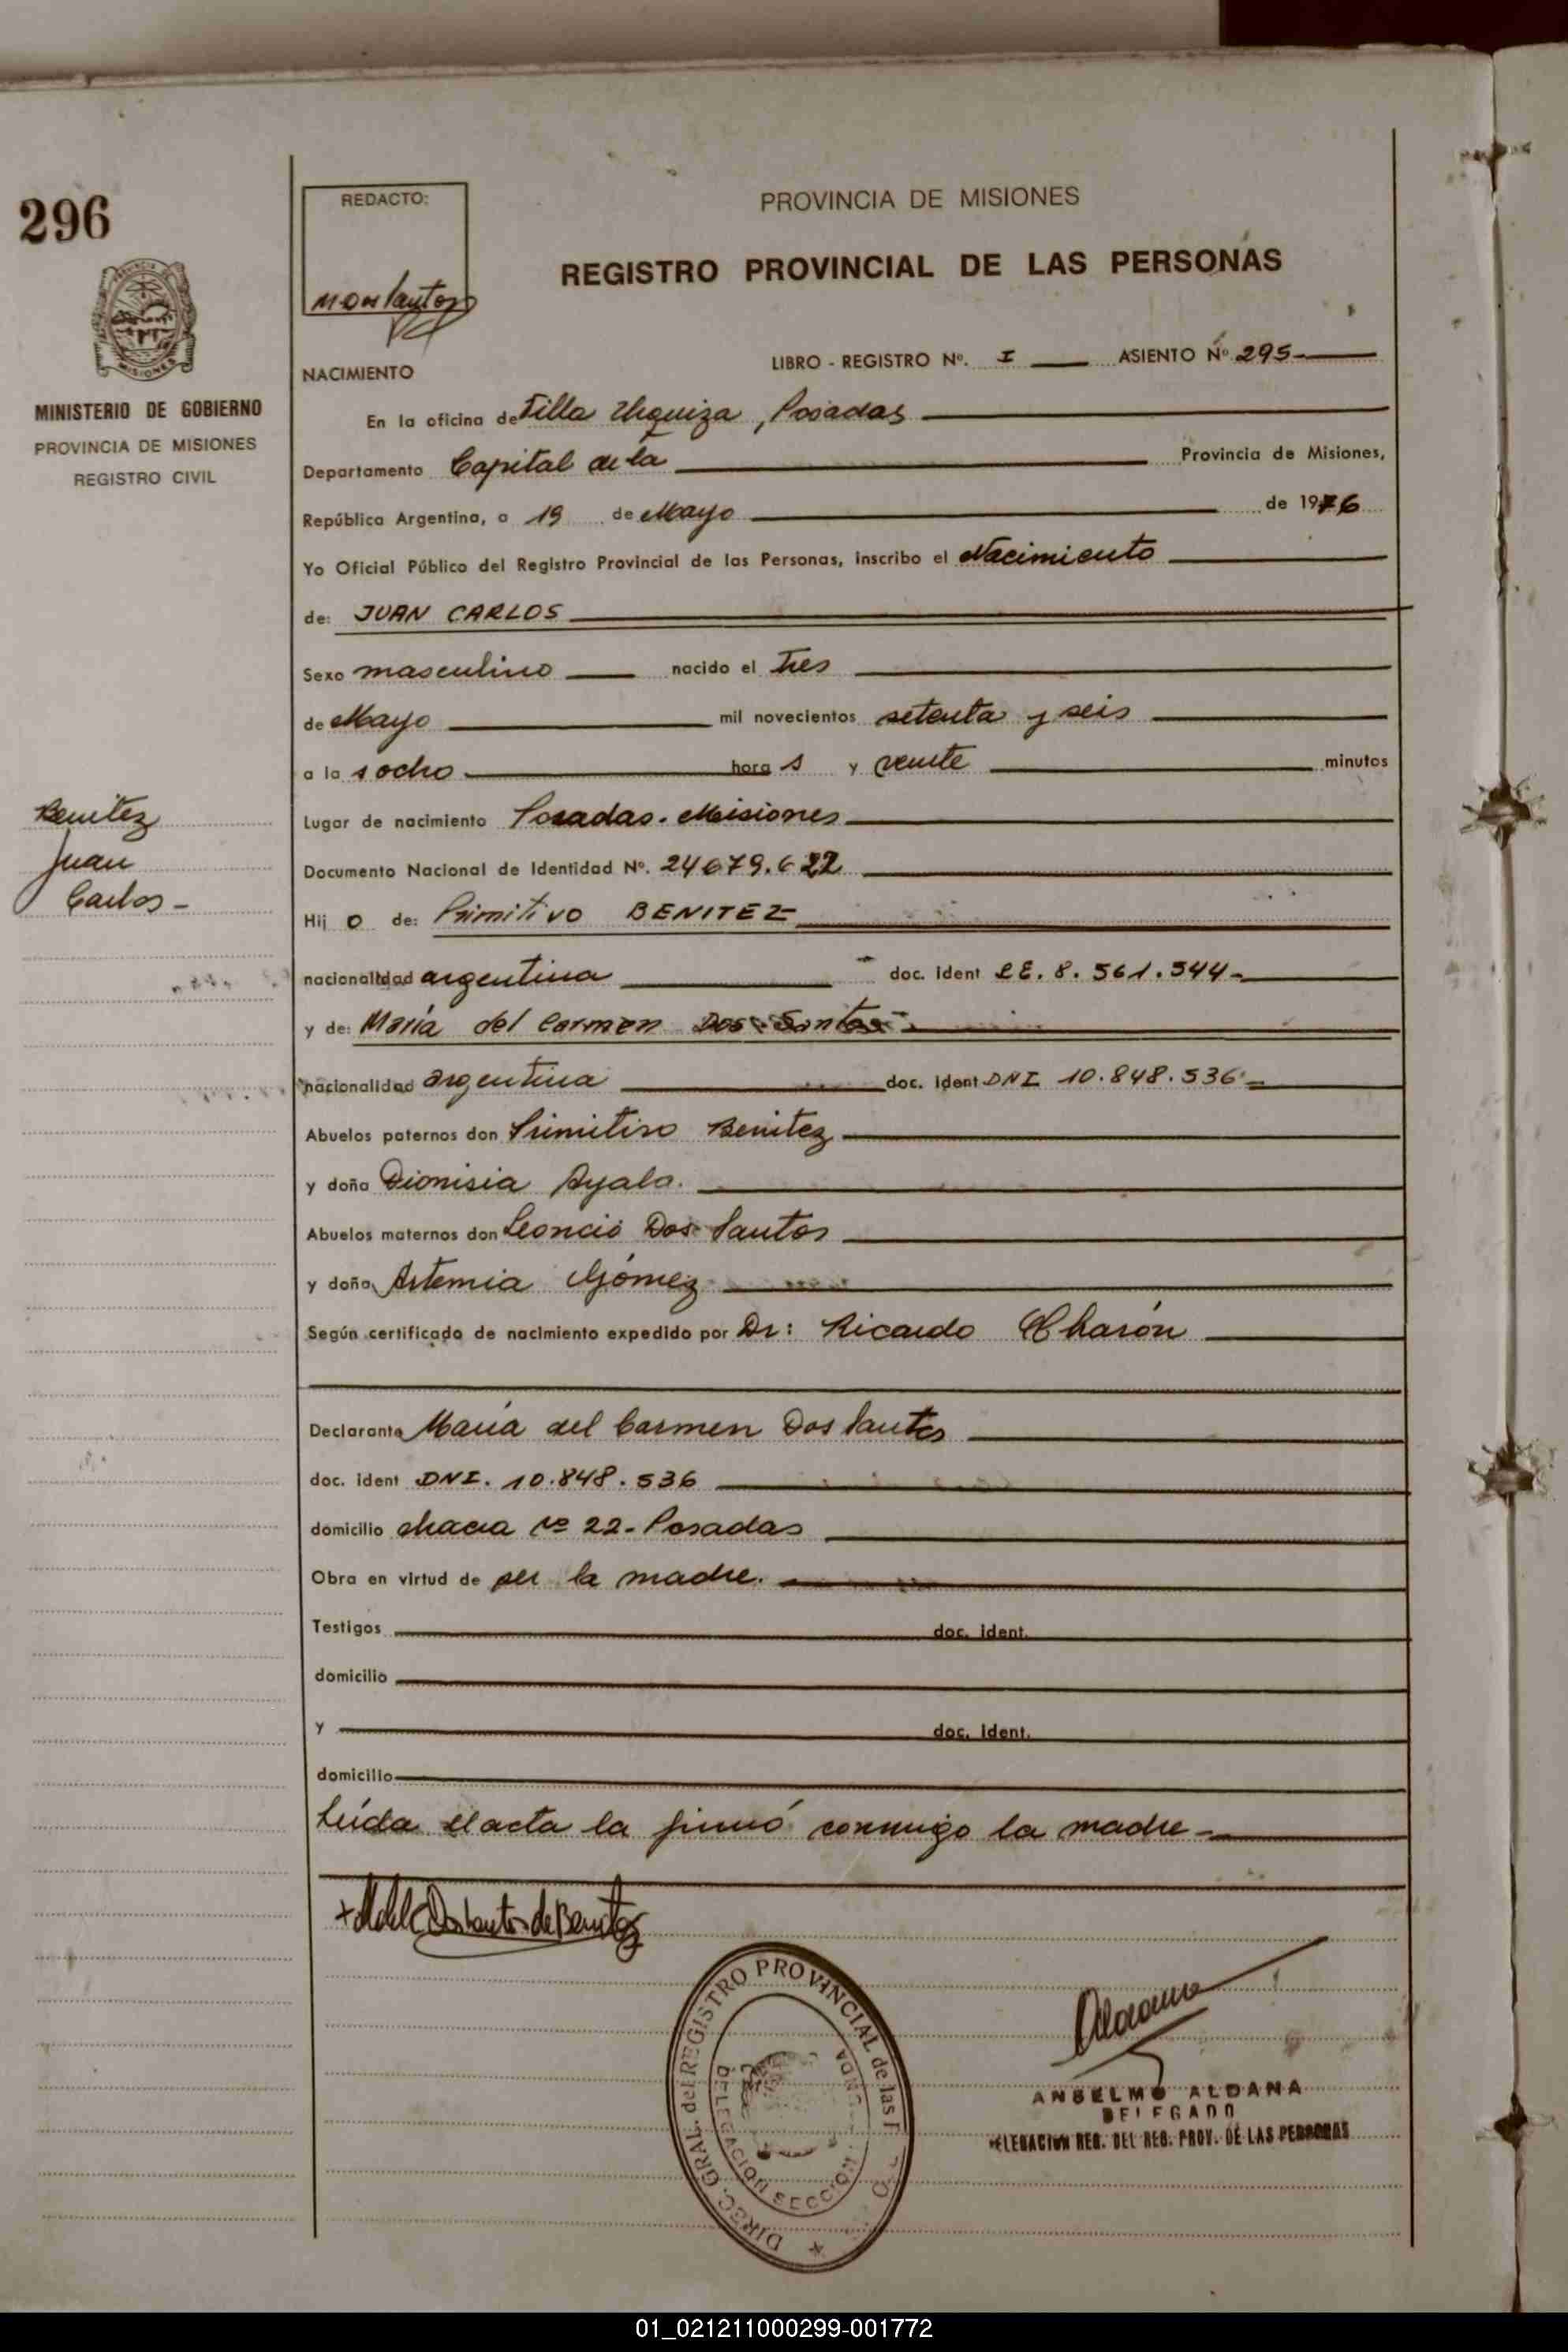 296
REDACTO:
PROVINCIA DE MISIONES
REGISTRO PROVINCIAL DE LAS PERSONAS
MISIONES
MINISTERIO DE GOBIERNO
PROVINCIA DE MISIONES
REGISTRO CIVIL
NACIMIENTO
LIBRO - REGISTRO Nº. I ASIENTO Nº 295-
En la oficina de Villa Urquiza, Posadas
Departamento Capital de la Provincia de Misiones,
República Argentina, a 19 de Mayo de 1976
Yo Oficial Público del Registro Provincial de las Personas, inscribo el Nacimiento
de: JUAN CARLOS
Sexo masculino nacido el tres
de Mayo mil novecientos setenta y seis
a la s ocho hora s y veinte minutos
Benitez
Juan
Carlos -
Lugar de nacimiento Posadas. Misiones
Documento Nacional de Identidad Nº. 24679.622
Hij o de: Primitivo BENITEZ
nacionalidad argentina doc. ident LE. 8. 561. 544-
y de: María del Carmen Dos Santos
nacionalidad argentina doc. ident DNI 10.848.536-
Abuelos paternos don Primitivo Benitez
y doña Dionisia Ayala.
Abuelos maternos don Leoncio Dos Santos
y doña Artemia Gómez
Según certificado de nacimiento expedido por Dr: Ricardo
Declarante María del Carmen Dos Santos
doc. ident DNI. 10.848.536
domicilio chacra nº 22- Posadas
Obra en virtud de ser la madre.
Testigos doc. ident.
domicilio
y doc. ident.
domicilio
Leída el acta la firmó conmigo la madre-
Dos Santos de Benitez
DIREC. GRAL. del REGISTRO PROVINCIAL de las
DELEGACION SECCION
Aldana
ANSELMO ALDANA
DELEGADO
DELEGACION REG. DEL REG. PROV. DE LAS PERSONAS
01_021211000299-001772